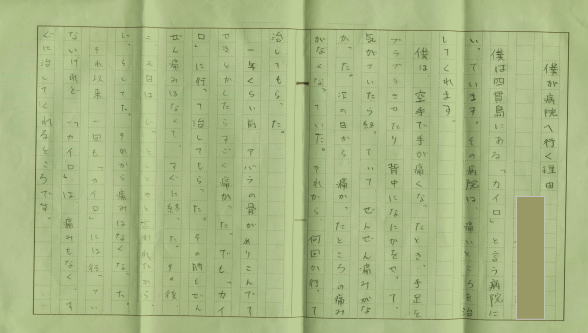 僕が病院へ行く理由
僕は四貫島にある「カイロ」と言う病院に
い,ています。その病院は、痛いところを治
してくれます。
僕は、空手で手が痛くな,たとき、手足を
ブラブラさせたり、背中になにかをや,て、
気がついたら終,ていて、ぜんぜん痛みがな
か,た。次の日から、痛か,たところの痛み
がなくな,ていた。それから、何回か行,て
治してもら,た。
一年くらい前、アバラの骨が
せきとかしたらすごく痛か,た。でも「カイ
ロ」に行,て治してもら,た。その時もぜん
ぜん痛みはなくて、すぐに終,た。その後、
二、三日は
らしてた。それから痛みはなくな,た。
それ以来、一回も「カイロ」には行,てい
ないけれど、「カイロ」は、痛みもなく、す
ぐに治してくれるところです。